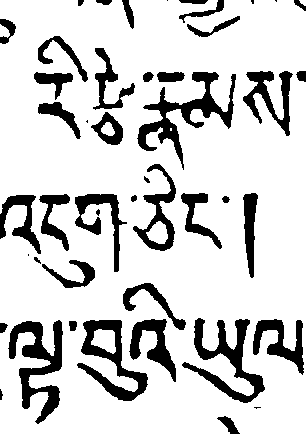 རྣམས
འདུག་ཅིང་།
ལྟ་བུའི་ཡུལ